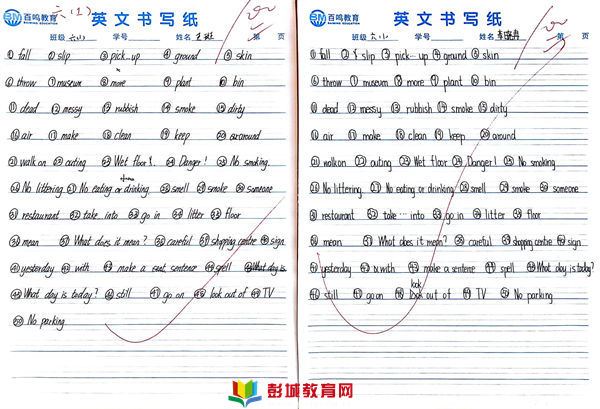 百鸣教育
BAIMING EDUCATION
英文书写纸
班级 六(1) 学号 姓名 第 页
① fall ② slip ③ pick...up ④ ground ⑤ skin
⑥ throw ⑦ museum ⑧ more ⑨ plant ⑩ bin
⑪ dead ⑫ messy ⑬ rubbish ⑭ smoke ⑮ dirty
⑯ air ⑰ make ⑱ clean ⑲ keep ⑳ around
㉑ walk on ㉒ outing ㉓ Wet floor! ㉔ Danger! ㉕ No smoking.
㉖ No littering. ㉗ No eating or drinking. ㉘ smell ㉙ smoke ㉚ someone
㉛ restaurant ㉜ take into ㉝ go in ㉞ litter ㉟ floor
㊱ mean ㊲ What does it mean? ㊳ careful ㊴ shopping centre ㊵ sign
㊶ yesterday ㊷ with ㊸ make a sentence ㊹ spell
㊺ What day is today? ㊻ still ㊼ go on ㊽ look out of ㊾ TV
㊿ No parking
百鸣教育
BAIMING EDUCATION
英文书写纸
班级 六(1) 学号 姓名 第 页
① fall ② slip ③ pick...up ④ ground ⑤ skin
⑥ throw ⑦ museum ⑧ more ⑨ plant ⑩ bin
⑪ dead ⑫ messy ⑬ rubbish ⑭ smoke ⑮ dirty
⑯ air ⑰ make ⑱ clean ⑲ keep ⑳ around
㉑ walk on ㉒ outing ㉓ Wet floor ㉔ Danger! ㉕ No smoking
㉖ No littering. ㉗ No eating or drinking ㉘ smell ㉙ smoke ㉚ someone
㉛ restaurant ㉜ take...into ㉝ go in ㉞ litter ㉟ floor
㊱ mean ㊲ What does it mean? ㊳ careful ㊴ shopping centre ㊵ sign
㊶ yesterday ㊷ with ㊸ make a sentence ㊹ spell ㊺ What day is today?
㊻ still ㊼ go on ㊽ look out of ㊾ TV ㊿ No parking
彭城教育网